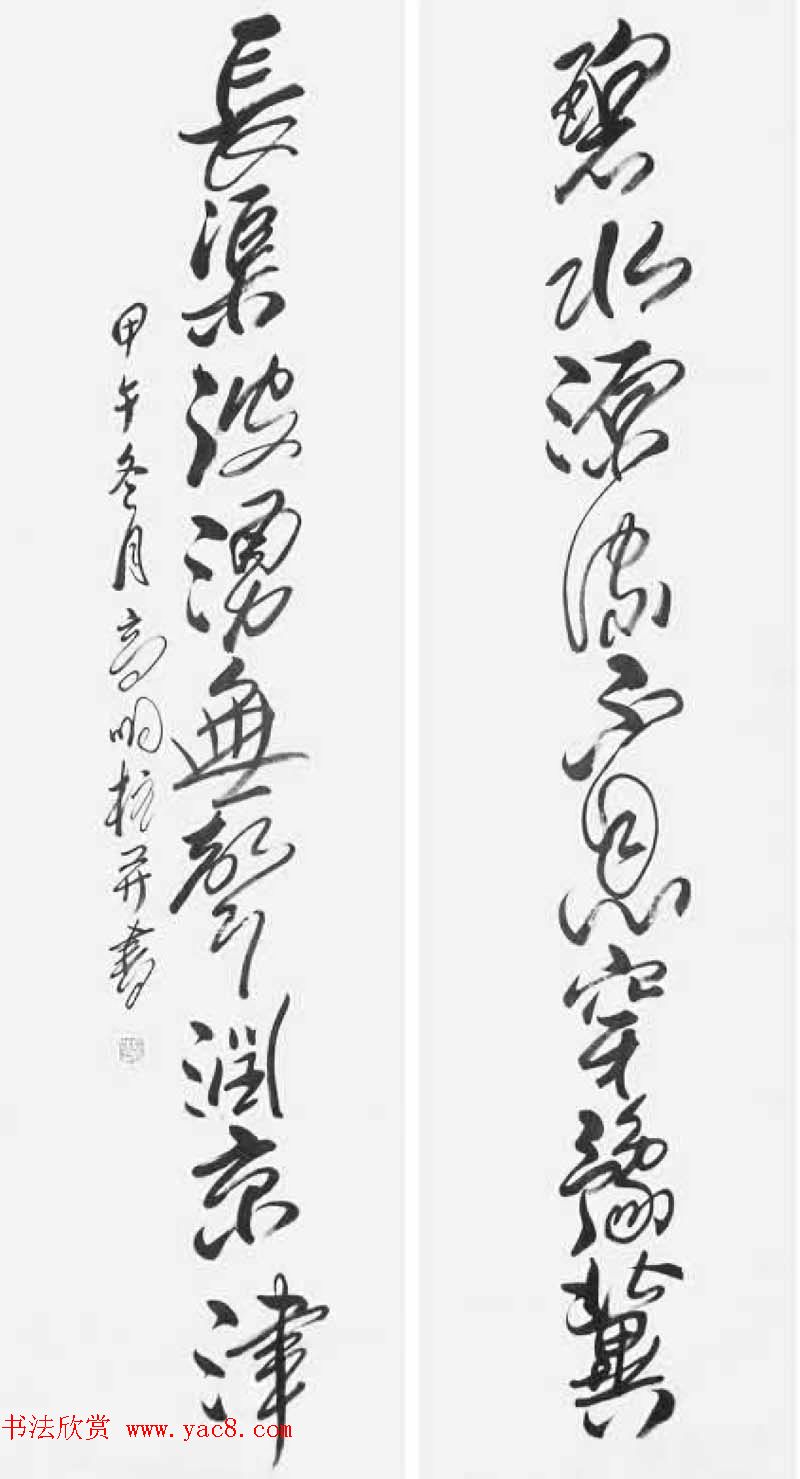 碧水源流不息穿豫冀
長渠波湧無聲潤京津
甲午冬月高明柱并書
书法欣赏 www.yac8.com